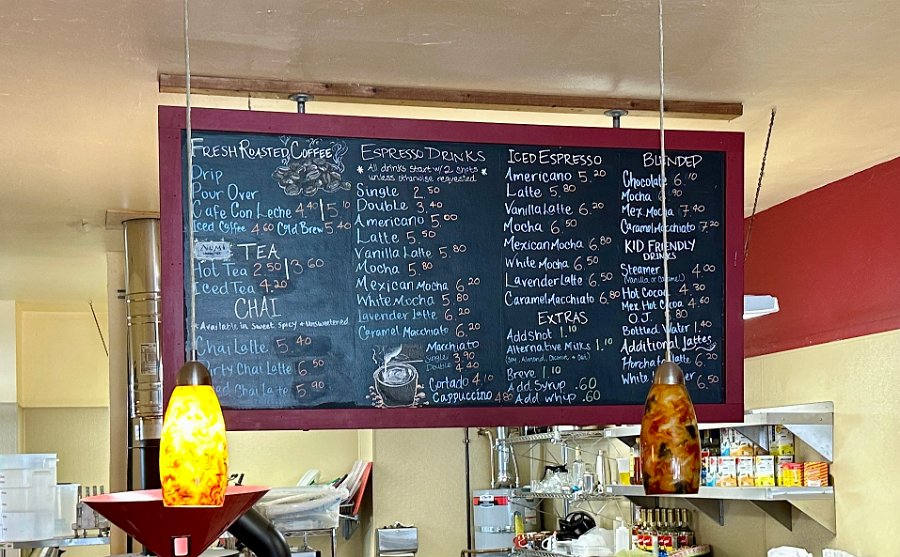 FRESH ROASTED COFFEE
Drip
Pour Over
Cafe Con Leche 4.40 | 5.10
Iced Coffee 4.60 Cold Brew 5.40
TEA
Hot Tea 2.50 | 3.60
Iced Tea 4.20
CHAI
*Available in Sweet Spicy + Unsweetened
Chai Latte 5.40
Dirty Chai Latte 6.50
Chai Latte 5.90
ESPRESSO DRINKS
* All drinks start w/ 2 shots *
unless otherwise requested
Single 2.50
Double 3.40
Americano 5.00
Latte 5.50
Vanilla Latte 5.80
Mocha 5.80
Mexican Mocha 6.20
White Mocha 5.80
Lavender Latte 6.20
Caramel Macchiato 6.20
Macchiato
Single 3.90
Double 4.40
Cortado 4.10
Cappuccino 4.80
ICED ESPRESSO
Americano 5.20
Latte 5.80
Vanilla Latte 6.20
Mocha 6.50
Mexican Mocha 6.80
White Mocha 6.50
Lavender Latte 6.50
Caramel Macchiato 6.80
EXTRAS
Add Shot 1.10
Alternative Milks 1.10
(Soy, Almond, Coconut, + Oat)
Breve 1.10
Add Syrup .60
Add whip .60
BLENDED
Chocolate 6.10
Mocha 6.90
Mex Mocha 7.40
Caramel Macchiato 7.20
KID FRIENDLY
DRINKS
Steamer 4.00
(Vanilla or Caramel)
Hot Cocoa 4.30
Mex Hot Cocoa 4.60
O.J. .80
Bottled Water 1.40
Additional Lattes
Horchata Latte 6.20
White 6.50